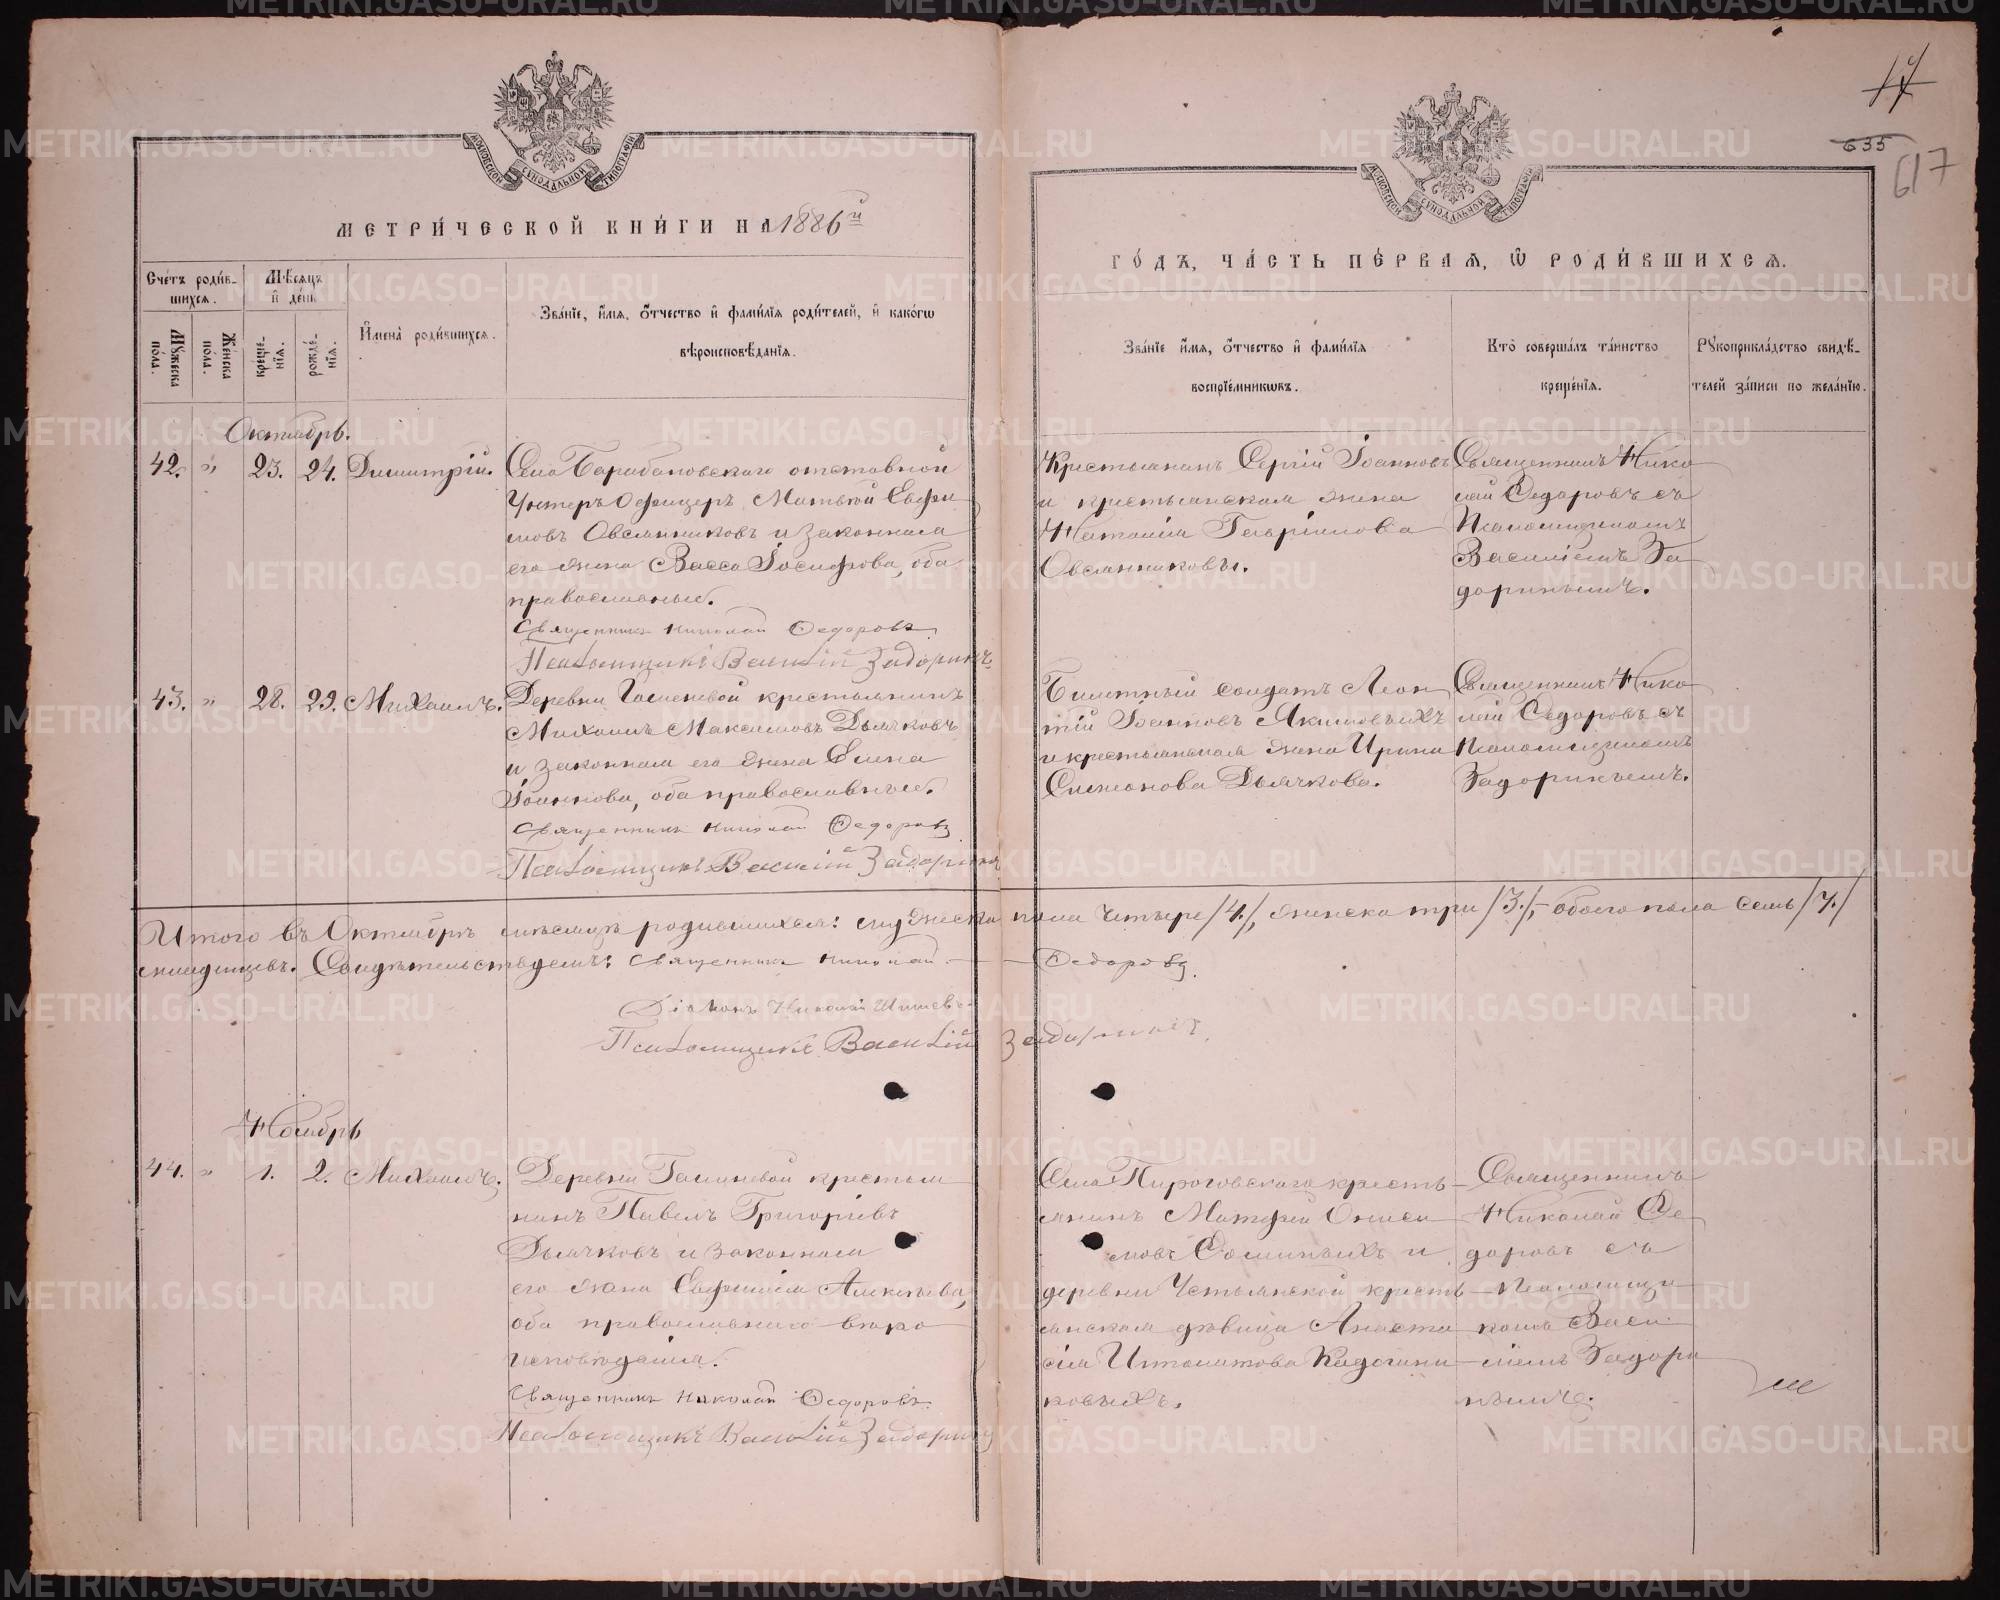 МЕТРИЧЕСКОЙ КНИГИ НА 1886й
ГОДЪ, ЧАСТЬ ПЕРВАЯ, Ѡ РОДИВШИХСЯ.
17
635
617
МОСКОВСКОЙ СѴНОДАЛЬНОЙ ТИПОГРАФІИ
МОСКОВСКОЙ СѴНОДАЛЬНОЙ ТИПОГРАФІИ
Счетъ родив-
шихся.
Мужеска пола.
Женска пола.
Мѣсяцъ
и день
рожде-
нія.
креще-
нія.
Имена родившихся.
Званіе, имя, отчество и фамилія родителей, и какогѡ
вѣроисповѣданія.
Званіе имя, отчество и фамилія
воспріемникѡвъ.
Кто совершалъ таинство
крещенія.
Рукоприкладство свидѣ-
телей записи по желанію.
Октябрь.
42. " 23. 24. Димитрій.
Села Барабановскаго отставной
Унтеръ Офицеръ Матвѣй Евфи
мовъ Овсянниковъ и законная
его жена Васса Іосифова, оба
православные.
Священникъ Николай Ѳедоровъ
Псаломщикъ Василій Задоринъ
Крестьянинъ Сергій Іоанновъ
и крестьянская жена
Наталія Гавріилова
Овсянниковы.
Священникъ Нико
лай Ѳедоровъ съ
Псаломщикомъ
Василіемъ За
доринымъ.
43. " 28. 29. Михаилъ.
Деревни крестьянинъ
Михаилъ Максимовъ Дьячковъ
и законная его жена Елена
Іоаннова, оба православные.
Священникъ Николай Ѳедоровъ
Псаломщикъ Василій Задоринъ
Билетный солдатъ Леон
тій Іоанновъ Якимовыхъ
и крестьянская жена Ирина
Симеонова Дьячкова.
Священникъ Нико
лай Ѳедоровъ съ
Псаломщикомъ
Задоринымъ.
Итого въ Октябрѣ мѣсяцѣ родившихся: мужеска пола четыре /4./, женска три /3./, обоего пола семь /7./
младенцевъ. Свидѣтельствуемъ: Священникъ Николай Ѳедоровъ.
Діаконъ Николай
Псаломщикъ Василій Задоринъ.
Ноябрь
44. " 1. 2. Михаилъ.
Деревни крестья
нинъ Павелъ Григоріевъ
Дьячковъ и законная
его жена Евфимія Алексѣева,
оба православнаго вѣро
исповѣданія.
Священникъ Николай Ѳедоровъ
Псаломщикъ Василій Задоринъ
Села Пироговскаго кресть
янинъ Матфей Ониси
мовъ и
деревни кресть
янская дѣвица Анаста
сія Ипполитова
ковыхъ.
Священникъ
Николай Ѳе
доровъ съ
Псаломщи
комъ Васи
ліемъ Задори
нымъ.